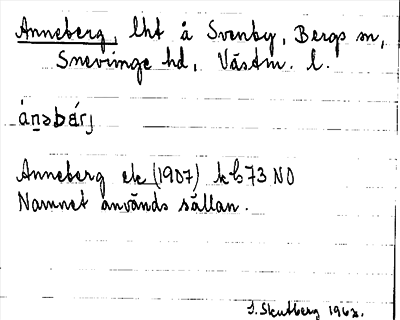 Anneberg, lht å Svenby, Bergs sn,
Snevringe hd, Västm. l.
ánəbár̡j
Anneberg ek (1907) kb 73 NO
Namnet används sällan.
S. Skutberg 1962.